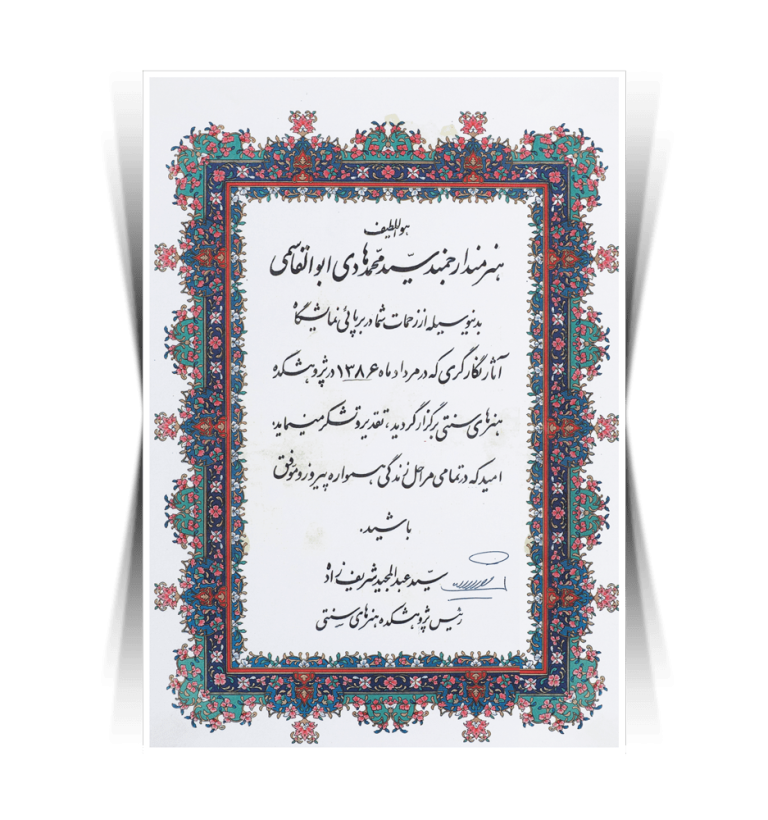 هواللطیف
هنرمند ارجمند سیّد محمّدهادی ابوالقاسمی
بدینوسیله از زحمات شما در برپائی نمایشگاه
آثار نگارگری که در مرداد ماه ۱۳۸۶ در پژوهشکده
هنرهای سنتی برگزار گردید، تقدیر و تشکر مینماید.
امید که در تمامی مراحل زندگی همواره پیروز و موفق
باشید.
سیّد عبدالمجید شریف زاده
رئیس پژوهشکده هنرهای سنتی